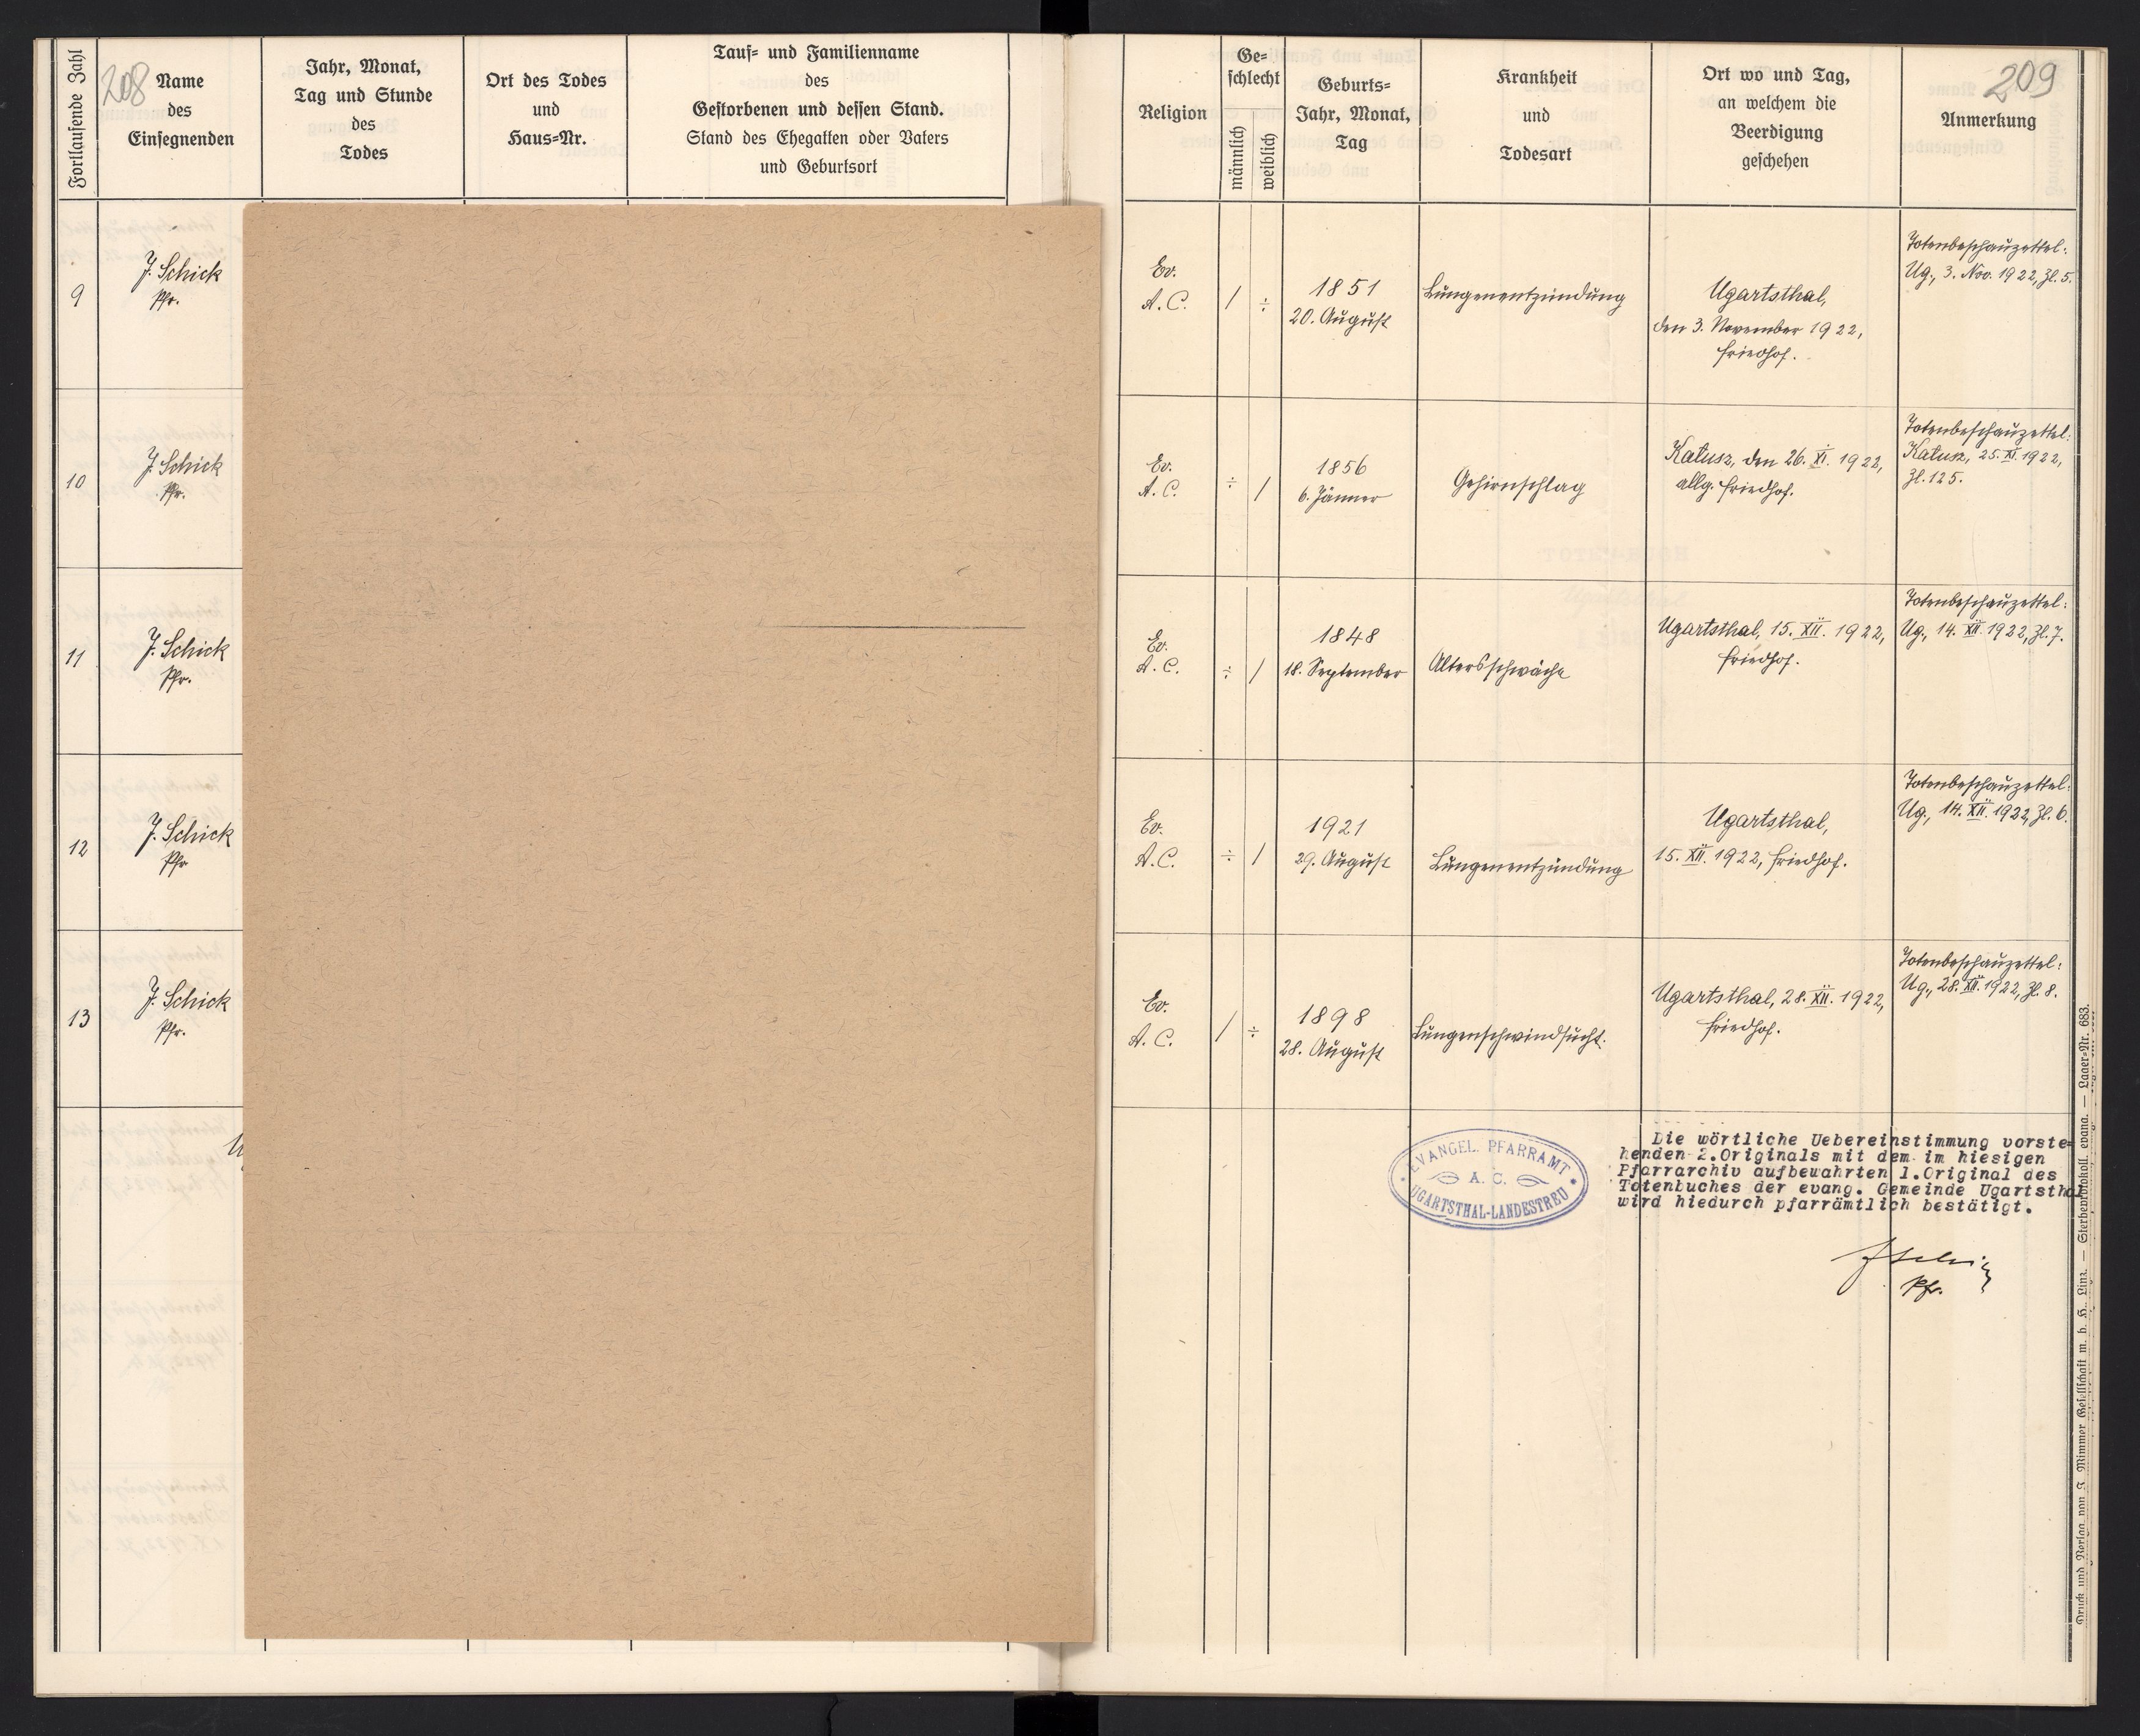 208
Fortlaufende Zahl
Name
des
Einsegnenden
Jahr, Monat,
Tag und Stunde
des
Todes
Ort des Todes
und
Haus=Nr.
Tauf= und Familienname
des
Gestorbenen und dessen Stand.
Stand des Ehegatten oder Vaters
und Geburtsort
Religion
Ge=
schlecht
männlich
weiblich
Geburts=
Jahr, Monat,
Tag
Krankheit
und
Todesart
Ort wo und Tag,
an welchem die
Beerdigung
geschehen
209
Anmerkung
9
J. Schick
Pfr.
Ev.
A. C.
/ ÷
1851
20. August
Lungenentzündung
Ugartsthal,
den 3. November 1922,
Friedhof.
Totenbeschauzettel:
Ug., 3. Nov. 1922, Zl. 5.
10
J. Schick
Pfr.
Ev.
A. C.
÷ /
1856
6. Jänner
Gehirnschlag
Kałusz, den 26. XI. 1922,
allg. Friedhof.
Totenbeschauzettel:
Kałusz, 25. XI. 1922,
Zl. 125.
11
J. Schick
Pfr.
Ev.
A. C.
÷ /
1848
18. September
Altersschwäche
Ugartsthal, 15. XII. 1922,
Friedhof.
Totenbeschauzettel:
Ug., 14. XII. 1922, Zl. 7.
12
J. Schick
Pfr
Ev.
A. C.
÷ /
1921
29. August
Lungenentzündung
Ugartsthal,
15. XII. 1922, Friedhof.
Totenbeschauzettel:
Ug., 14. XII. 1922, Zl. 6.
13
J. Schick
Pfr.
Ev.
A. C.
/ ÷
1898
28. August
Lungenschwindsucht.
Ugartsthal, 28. XII. 1922,
Friedhof.
Totenbeschauzettel:
Ug., 28. XII. 1922, Zl. 8.
EVANGEL. PFARRAMT
A. C.
UGARTSTHAL-LANDESTREU
Die wörtliche Uebereinstimmung vorste=
henden 2.Originals mit dem im hiesigen
Pfarrarchiv aufbewahrten 1.Original des
Totenbuches der evang. Gemeinde Ugartsthal
wird hiedurch pfarrämtlich bestätigt.
Pfr.
Druck und Verlag von J. Wimmer Gesellschaft m. b. H., Linz. — Sterbeprotokoll, evang. — Lager=Nr. 683.